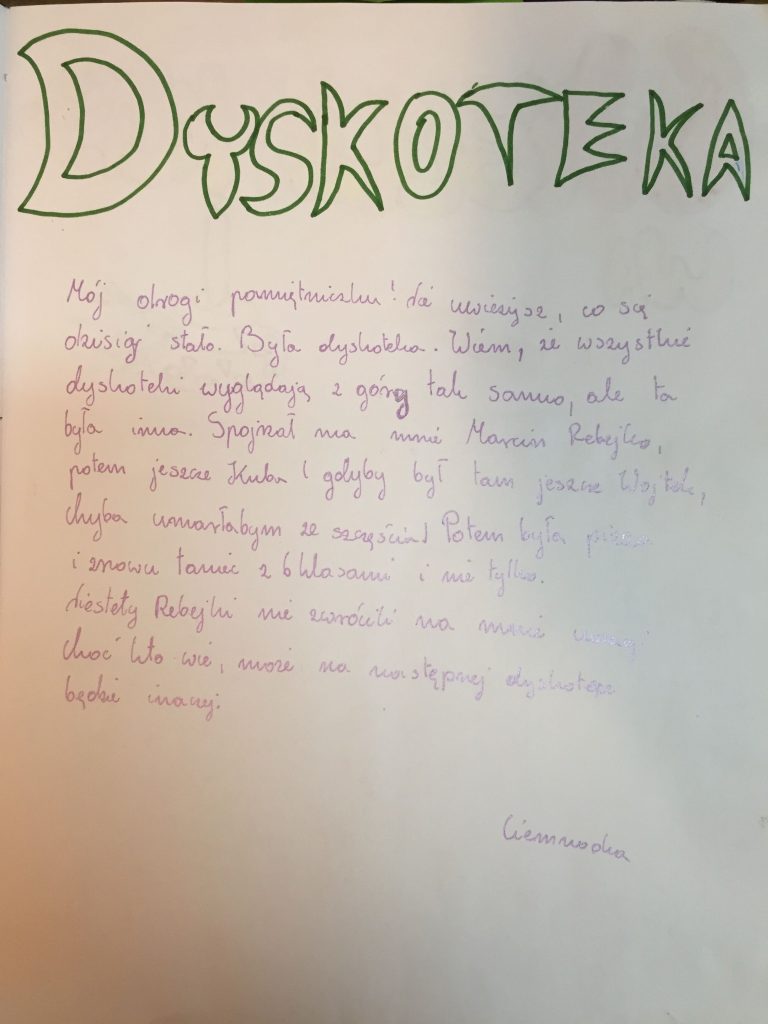 DYSKOTEKA
Mój drogi pamiętniczku! Nie uwierzysz, co się
dzisiaj stało. Była dyskoteka. Wiem, że wszystkie
dyskoteki wyglądają z góry tak samo, ale ta
była inna. Spojrzał na mnie Marcin Rebejko,
potem jeszcze Kuba i gdyby był tam jeszcze Wojtek,
chyba umarłabym ze szczęścia! Potem była pizza
i znowu taniec z 6 klasami i nie tylko.
Niestety Rebejki nie zwrócili na mnie uwagi
choć kto wie, może na następnej dyskotece
będzie inaczej.